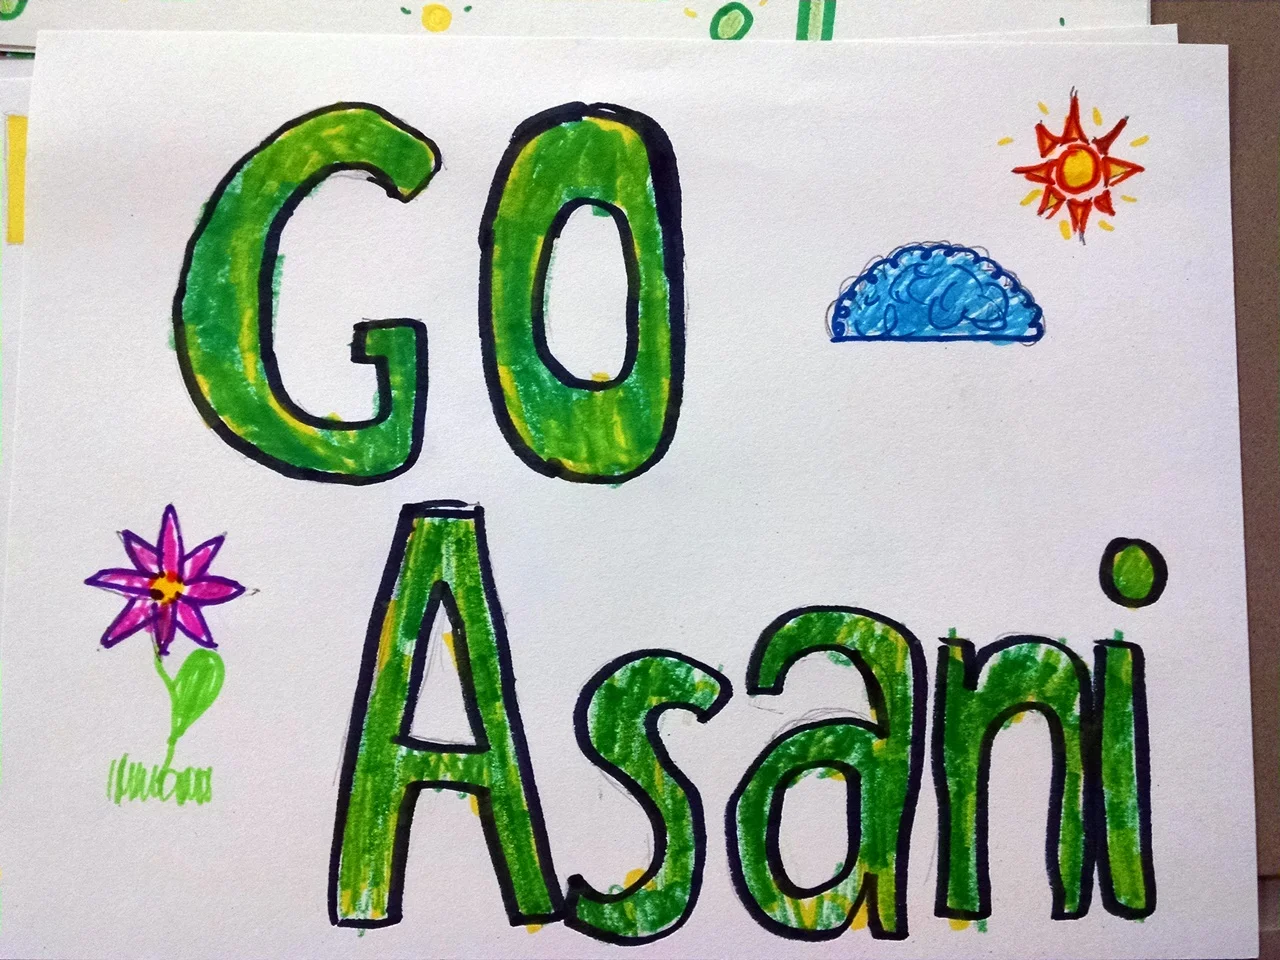 GO
Asani